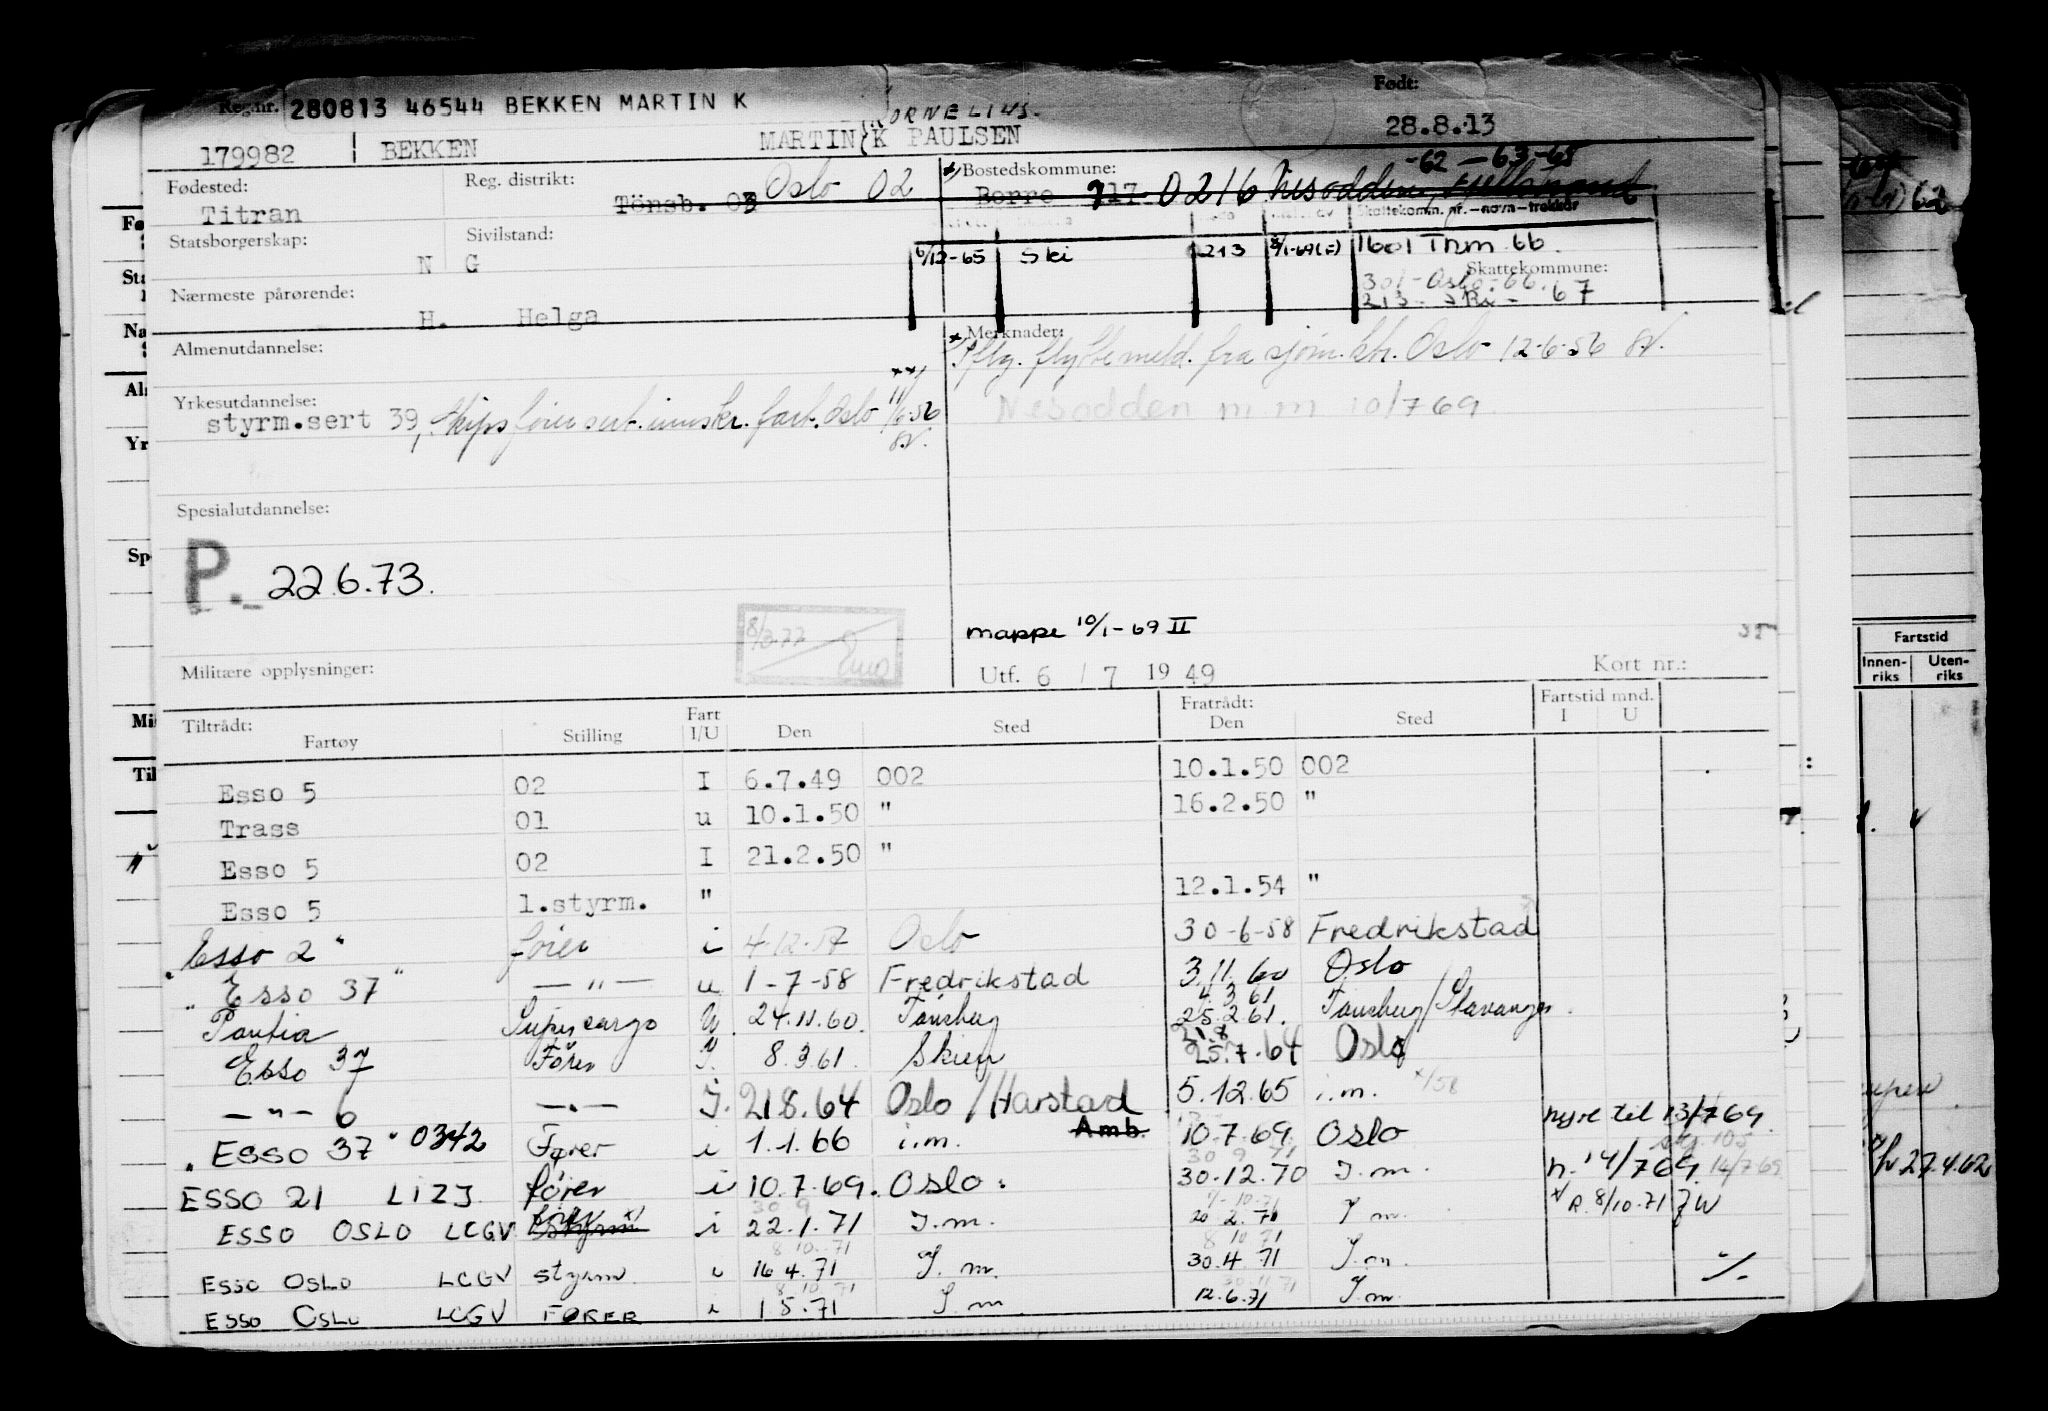 Reg.nr. 280813 46544 BEKKEN MARTIN K
ORNELIUS.
Født:
179982 BEKKEN MARTIN K PAULSEN 28.8.13
-62-63-65
Fødested: Reg. distrikt: Oslo 02 Bostedskommune:
Titran Tönsb. 03 Borre 717 0216 Nesodden,
Skattekomm. nr. - navn - trekkår
Statsborgerskap: Sivilstand:
N G
6/12-65 Ski 213 1601 Trm 66.
Skattekommune:
301-Oslo-66.
213 - Ski - 67
Nærmeste pårørende:
H. Helga
Almenutdannelse: Merknader:
fra sjøm. ktr. Oslo 12-6-56
Yrkesutdannelse: Nesodden m m 10/7 69.
styrm.sert 39, Skipsfører sert. innskr. fart. Oslo 11/6-56
Spesialutdannelse:
P. 22.6.73.
mappe 10/1-69 II
Militære opplysninger: Utf. 6 / 7 19 49 Kort nr.:
Tiltrådt: Fratrådt: Fartstid mnd.
Fartøy Stilling Fart I/U Den Sted Den Sted I U
Esso 5 02 I 6.7.49 002 10.1.50 002
Trass 01 u 10.1.50 " 16.2.50 "
Esso 5 02 I 21.2.50 "
Esso 5 1.styrm. " 12.1.54 "
"Esso 2" fører i 4-12-57 Oslo 30-6-58 Fredrikstad
"Esso 37" — " — u 1-7-58 Fredrikstad 3.11.60 Oslo
4.3.61
Supercargo U. 24.11.60. Tønsberg 25.2.61. Tønsberg/Stavanger.
21.8
Esso 37 Fører 8.3.61. Skien 25.7.64 Oslo
— " — 6 — " — I. 21.8.64 Oslo/Harstad 5.12.65 i.m.
Amb.
nyre til 13/7 69.
"Esso 37" 0342 Fører i 1.1.66 i.m. 10.7.69 Oslo
30 9 71
ESSO 21 LIZJ fører i 10.7.69. Oslo. 30.12.70 I.m. n. 14/7 69. 14/7 69
30 9
ESSO OSLO LCGV styrm i 22.1.71 I.m. I m. R. 8/10.71 JW
8 10 71 8 10 71
ESSO OSLO LCGV styrm. i 16 4.71 I. m. 30.4.71 I.m.
8 10 71 30 11 71
ESSO OSLO LCGV FØRER i 1 5.71 I.m. 12.6.71 I.m.
Fartstid
Innen-riks Uten-riks
27.4.62